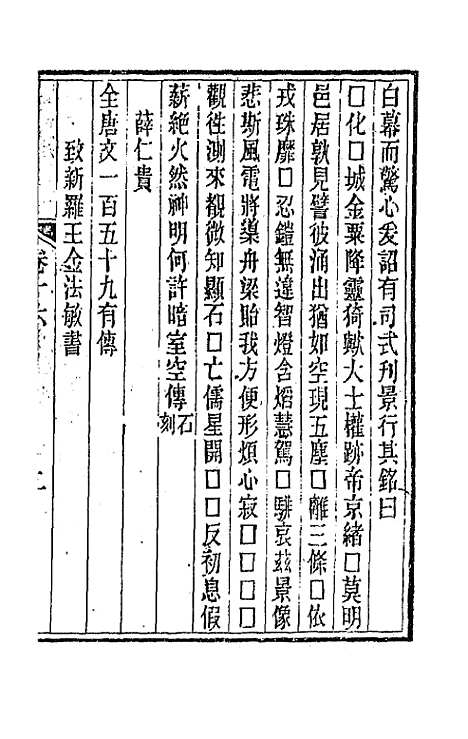 白幕而驚心爰詔有司式刊景行其銘曰
□化□城金粟降靈猗歟大士權跡帝京緒□莫明
邑居敦見譬彼涌出猶如空現五塵□離三條□依
戎珠靡□忍鎧無違智燈含熖慧駕□騑哀茲景像
悲斯風電將溴舟梁貽我方便形煩心寂□□□□
觀徃測來覩微知顯石□亡儒星開□□反初息假
薪絕火然神明何許暗室空傳石刻
薛仁貴
全唐文一百五十九有傳
致新羅王金法敏書
卷十六